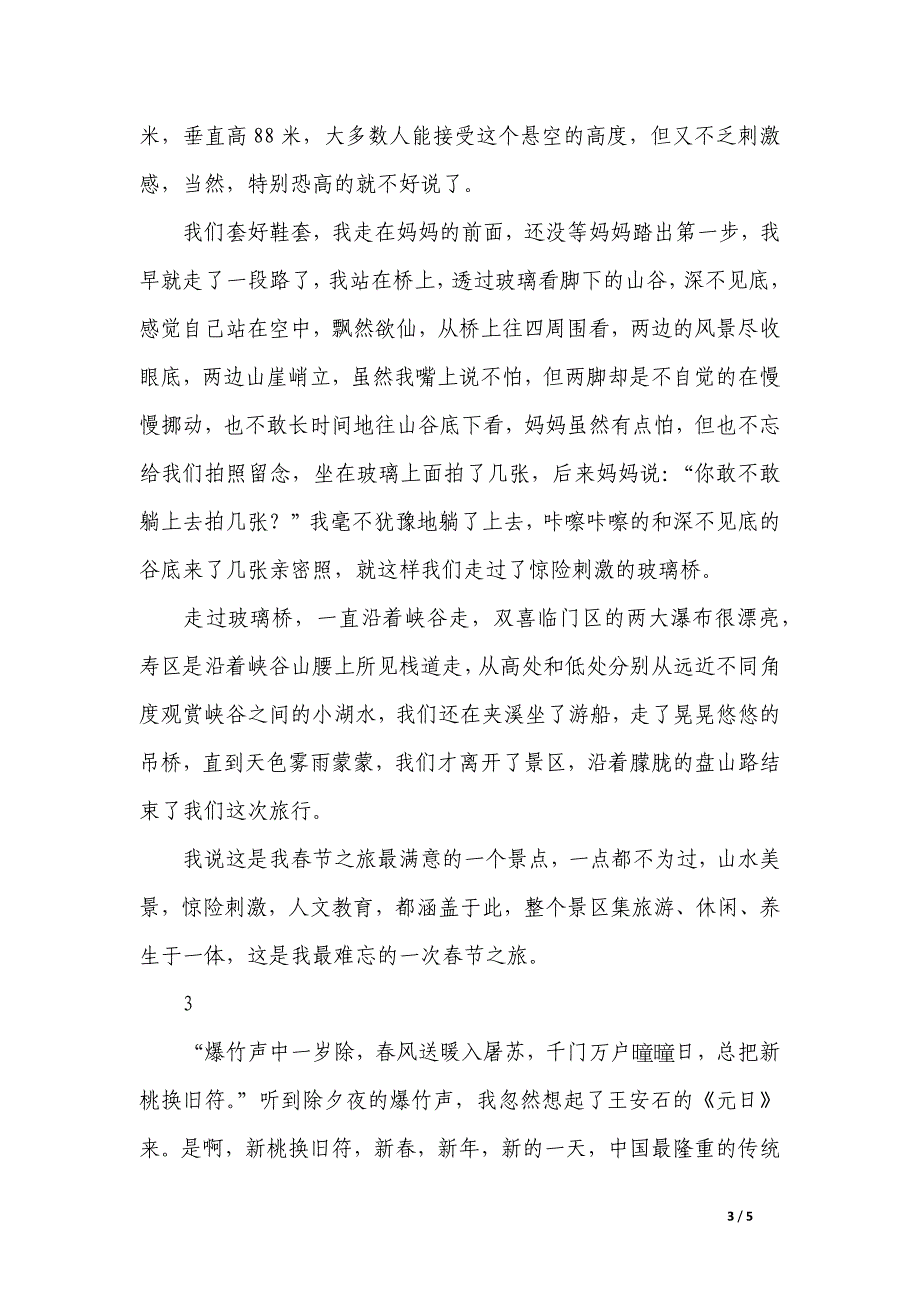 米，垂直高 88 米，大多数人能接受这个悬空的高度，但又不乏刺激
感，当然，特别恐高的就不好说了。
我们套好鞋套，我走在妈妈的前面，还没等妈妈踏出第一步，我
早就走了一段路了，我站在桥上，透过玻璃看脚下的山谷，深不见底，
感觉自己站在空中，飘然欲仙，从桥上往四周围看，两边的风景尽收
眼底，两边山崖峭立，虽然我嘴上说不怕，但两脚却是不自觉的在慢
慢挪动，也不敢长时间地往山谷底下看，妈妈虽然有点怕，但也不忘
给我们拍照留念，坐在玻璃上面拍了几张，后来妈妈说：“你敢不敢
躺上去拍几张？”我毫不犹豫地躺了上去，咔嚓咔嚓的和深不见底的
谷底来了几张亲密照，就这样我们走过了惊险刺激的玻璃桥。
走过玻璃桥，一直沿着峡谷走，双喜临门区的两大瀑布很漂亮，
寿区是沿着峡谷山腰上所见栈道走，从高处和低处分别从远近不同角
度观赏峡谷之间的小湖水，我们还在夹溪坐了游船，走了晃晃悠悠的
吊桥，直到天色雾雨蒙蒙，我们才离开了景区，沿着朦胧的盘山路结
束了我们这次旅行。
我说这是我春节之旅最满意的一个景点，一点都不为过，山水美
景，惊险刺激，人文教育，都涵盖于此，整个景区集旅游、休闲、养
生于一体，这是我最难忘的一次春节之旅。
3
“爆竹声中一岁除，春风送暖入屠苏，千门万户曈曈日，总把新
桃换旧符。”听到除夕夜的爆竹声，我忽然想起了王安石的《元日》
来。是啊，新桃换旧符，新春，新年，新的一天，中国最隆重的传统
3 / 5